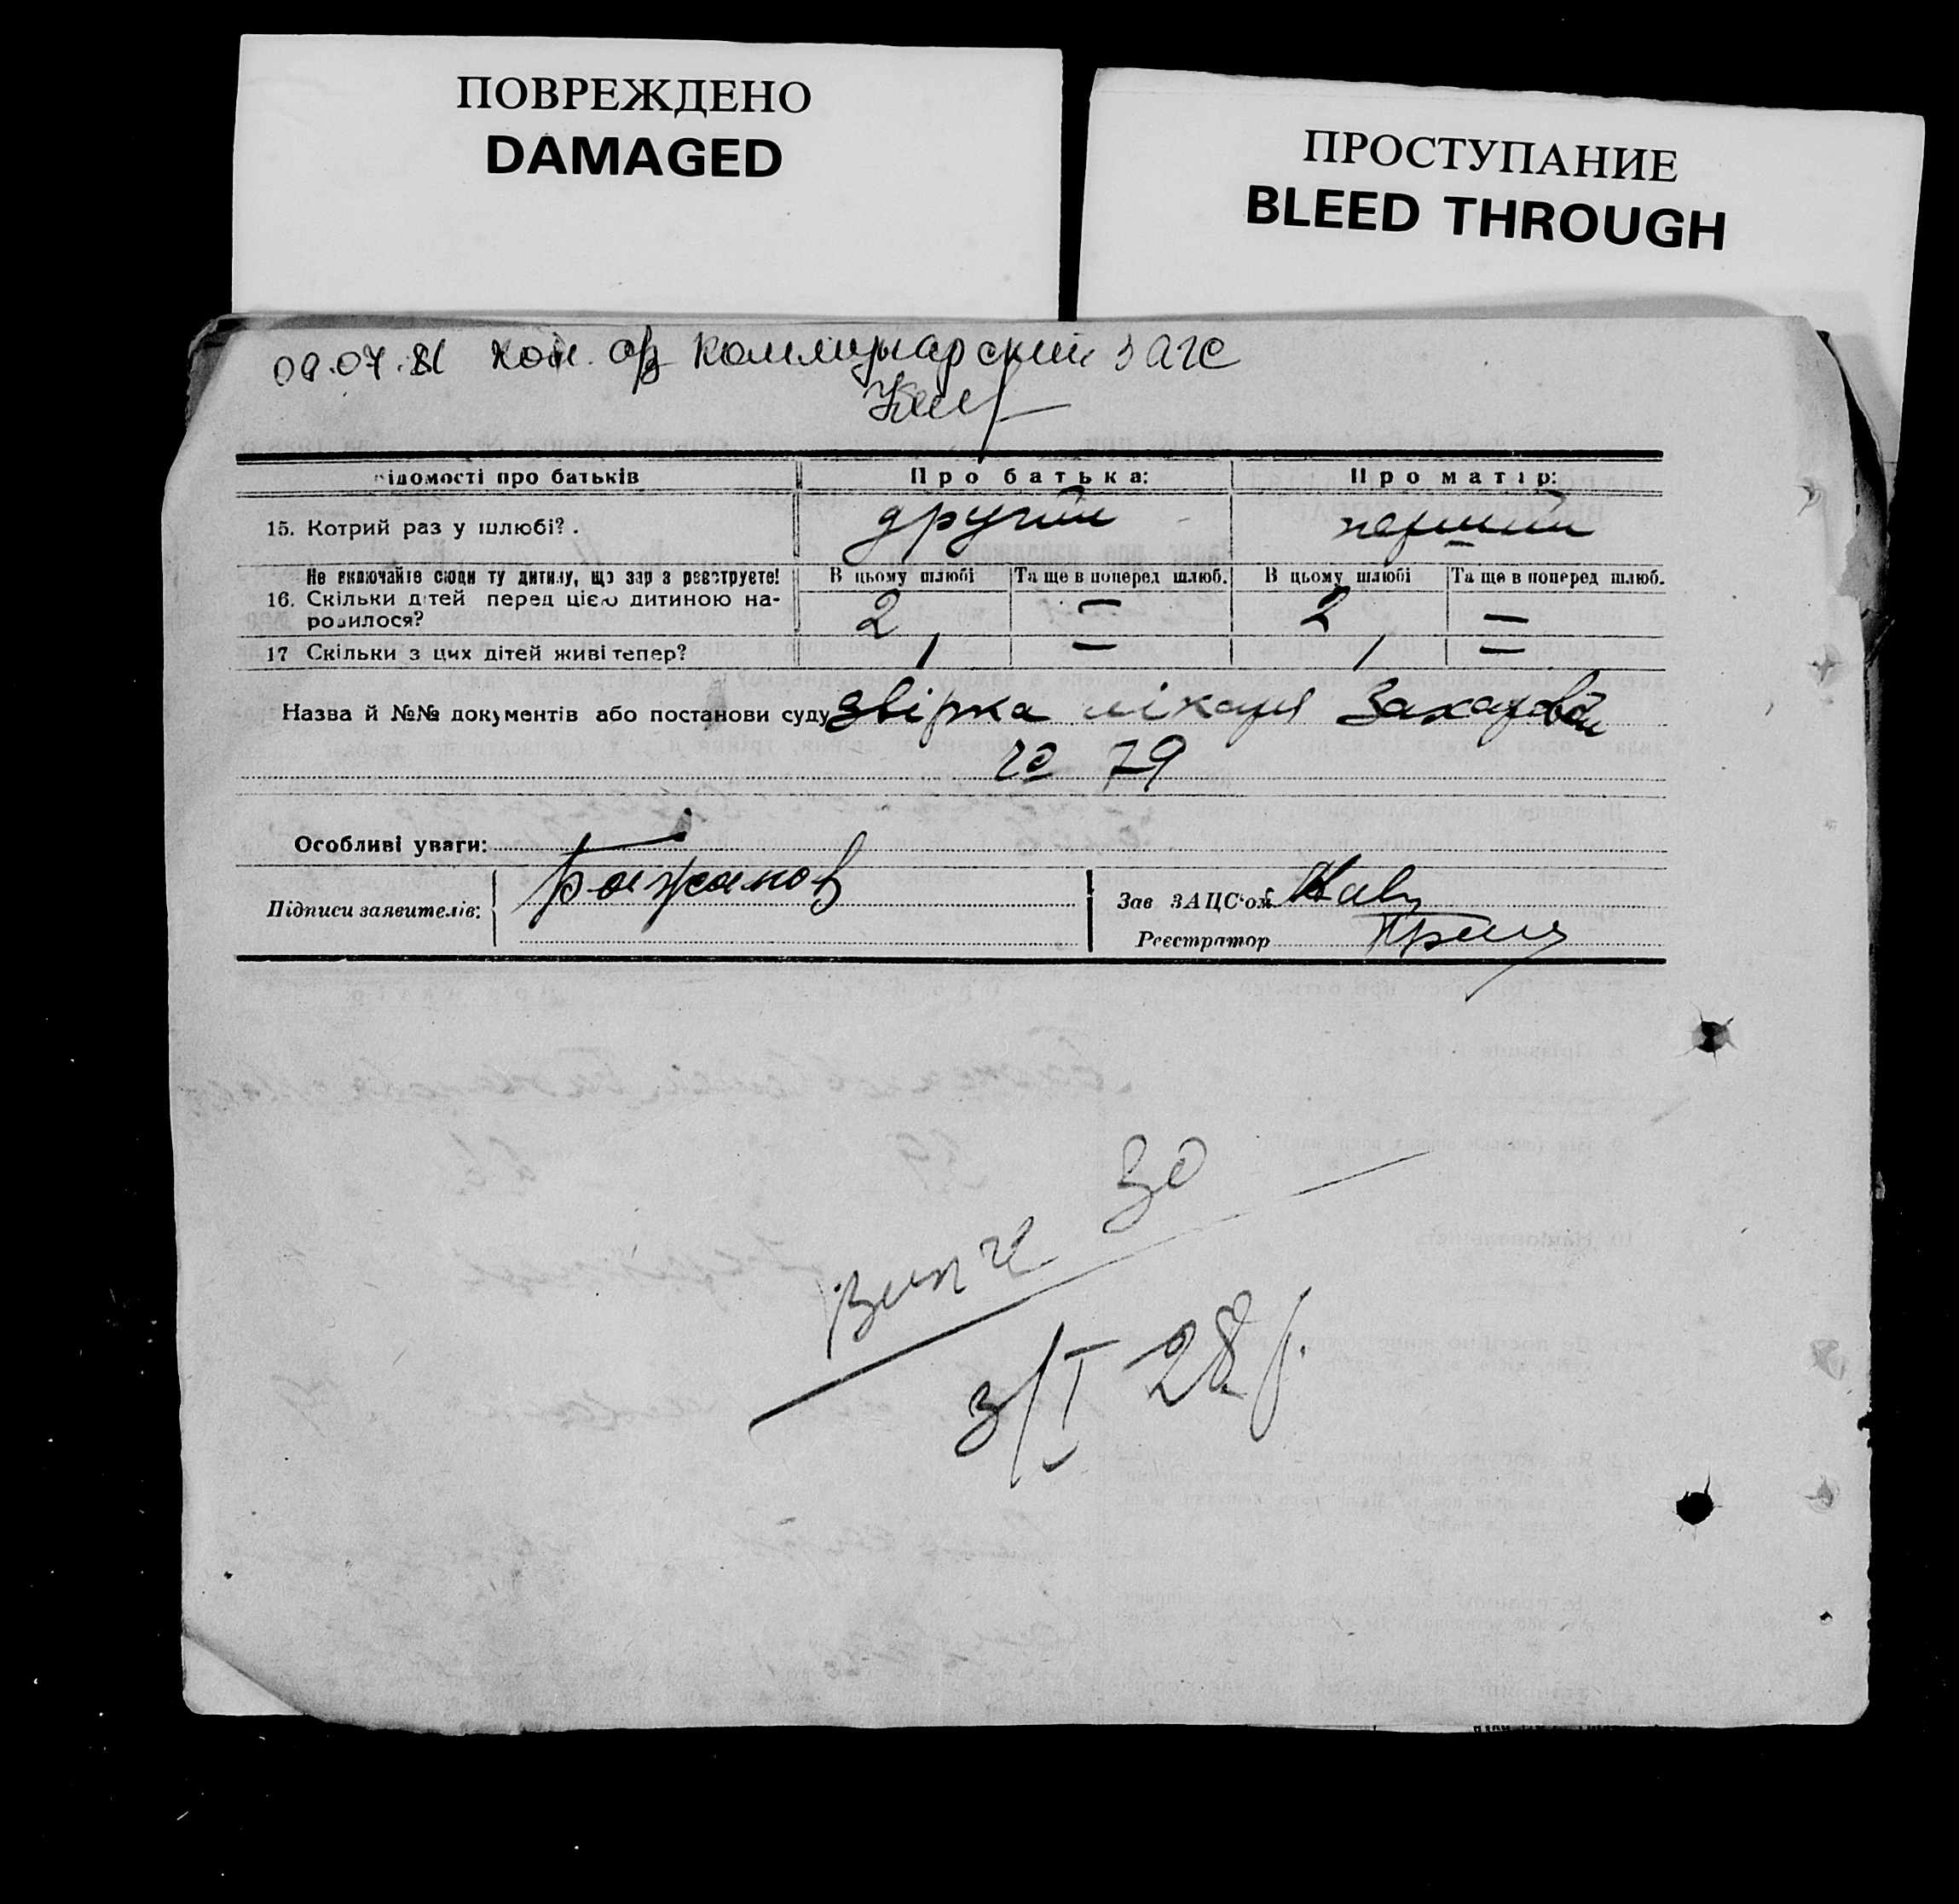 ПОВРЕЖДЕНО
DAMAGED
ПРОСТУПАНИЕ
BLEED THROUGH
09.07.81 коп. Коммунарский загс
ідомості про батьків
Про батька:
Про матір:
15. Котрий раз у шлюбі?.
другий
перший
Не включайте сюди ту дитину, що зараз реєструєте!
В цьому шлюбі
Та ще в поперед шлюб.
В цьому шлюбі
Та ще в поперед шлюб.
16. Скільки дітей перед цією дитиною на-
родилося?
2
—
2
—
17 Скільки з цих дітей живі тепер?
1
—
1
—
Назва й №№ документів або постанови суду звірка лікаря Захарової
№ 79
Особливі уваги:
Підписи заявителів:
Бажанов
Зав ЗАЦС'ом
Реєстратор
30
3/I 28 р.